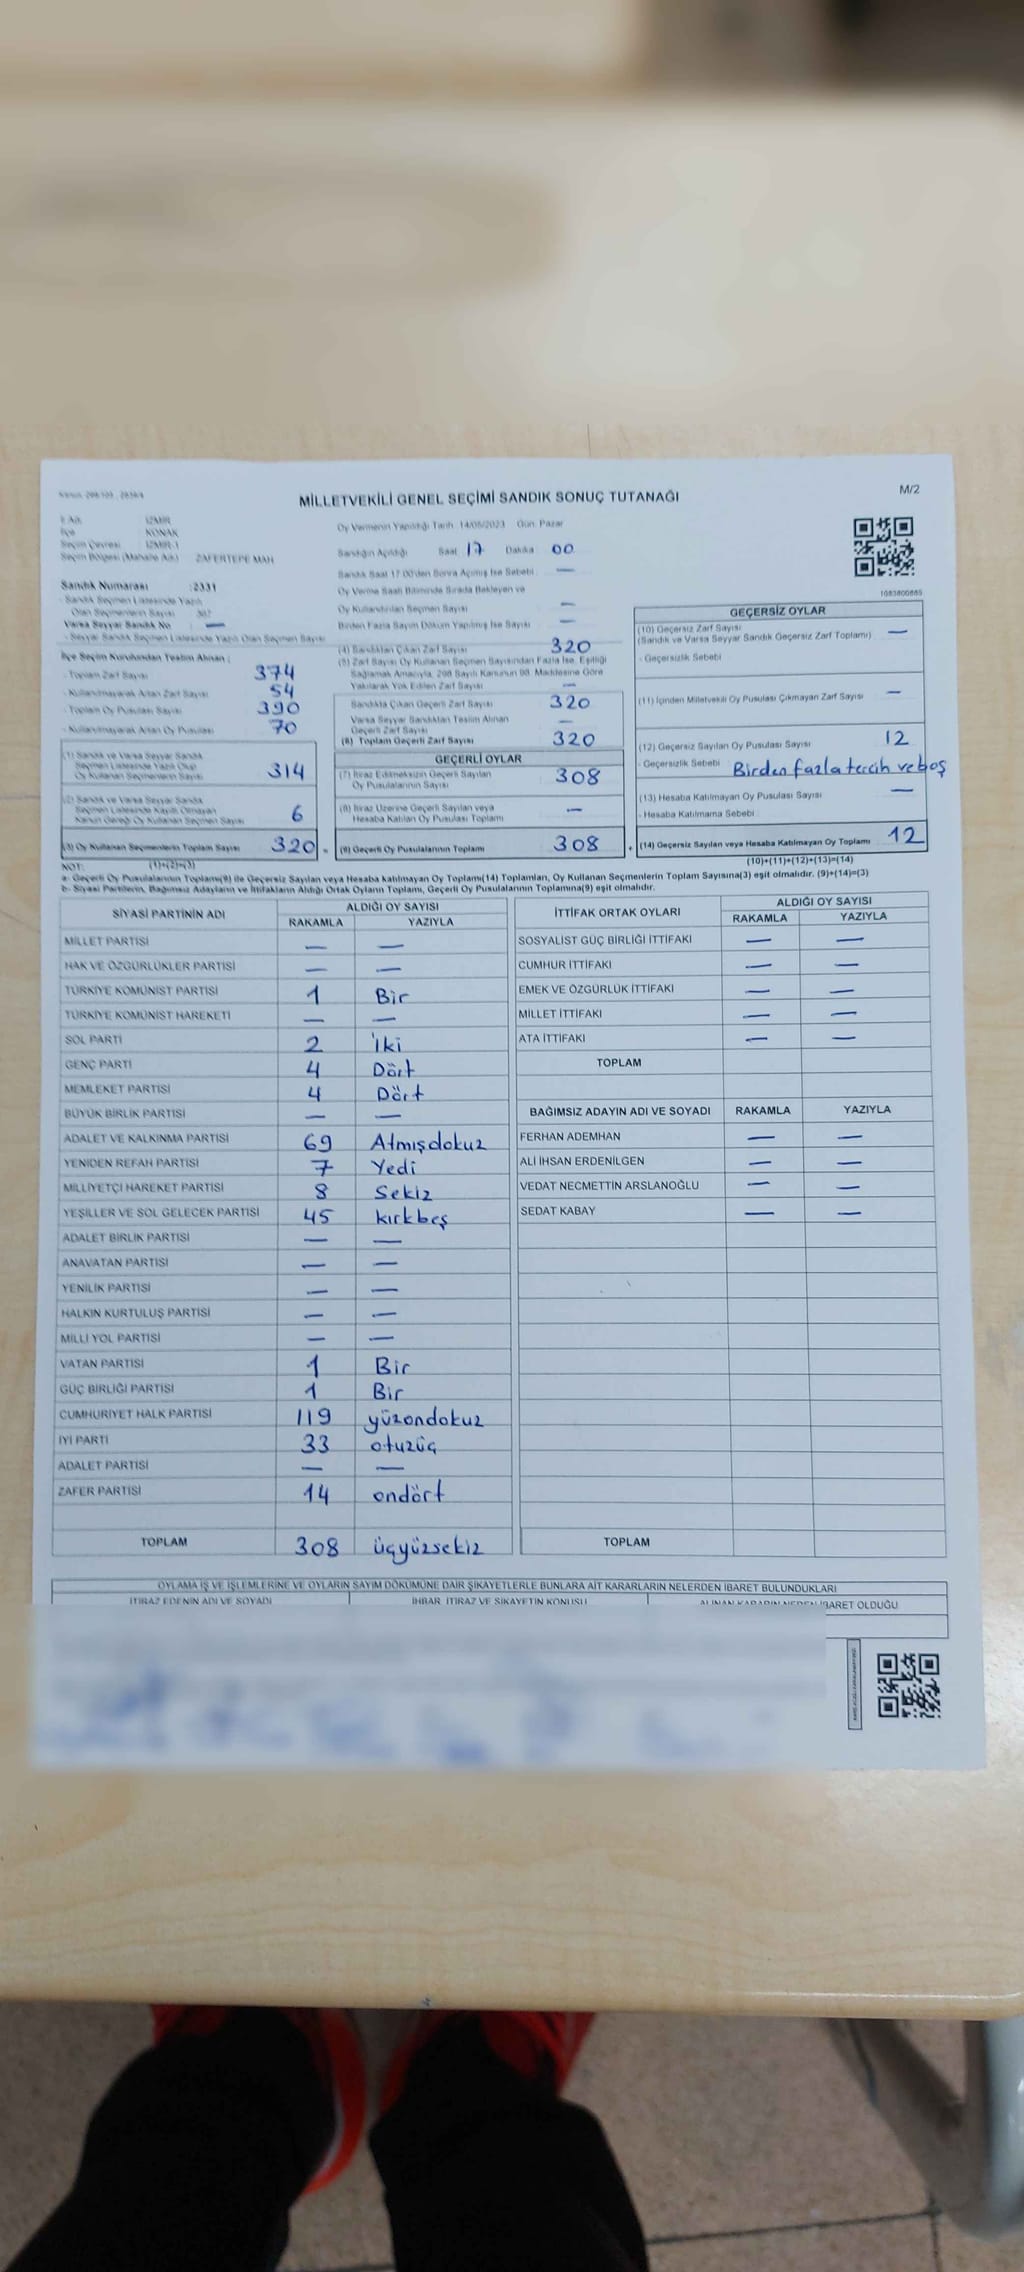 Kanun: 298/105 , 2839/4
MİLLETVEKİLİ GENEL SEÇİMİ SANDIK SONUÇ TUTANAĞI
M/2
İl Adı : İZMİR
İlçe : KONAK
Seçim Çevresi : İZMİR-1
Seçim Bölgesi (Mahalle Adı) : ZAFERTEPE MAH
Sandık Numarası :2331
- Sandık Seçmen Listesinde Yazılı
Olan Seçmenlerin Sayısı
Varsa Seyyar Sandık No —
- Seyyar Sandık Seçmen Listesinde Yazılı Olan Seçmen Sayısı
İlçe Seçim Kurulundan Teslim Alınan ;
- Toplam Zarf Sayısı 374
- Kullanılmayarak Artan Zarf Sayısı 54
- Toplam Oy Pusulası Sayısı 390
- Kullanılmayarak Artan Oy Pusulası 70
(1) Sandık ve Varsa Seyyar Sandık
Seçmen Listesinde Yazılı Olup
Oy Kullanan Seçmenlerin Sayısı 314
(2) Sandık ve Varsa Seyyar Sandık
Seçmen Listesinde Kayıtlı Olmayan
Kanun Gereği Oy Kullanan Seçmen Sayısı 6
(3) Oy Kullanan Seçmenlerin Toplam Sayısı 320 =
Oy Vermenin Yapıldığı Tarih: 14/05/2023 Gün: Pazar
Sandığın Açıldığı Saat 17 Dakika 00
Sandık Saat 17:00'den Sonra Açılmış İse Sebebi —
Oy Verme Saati Bitiminde Sırada Bekleyen ve
Oy Kullandırılan Seçmen Sayısı —
Birden Fazla Sayım Döküm Yapılmış İse Sayısı —
(4) Sandıktan Çıkan Zarf Sayısı 320
(5) Zarf Sayısı Oy Kullanan Seçmen Sayısından Fazla İse, Eşitliği
Sağlamak Amacıyla, 298 Sayılı Kanunun 98. Maddesine Göre
Yakılarak Yok Edilen Zarf Sayısı —
Sandıkta Çıkan Geçerli Zarf Sayısı 320
Varsa Seyyar Sandıktan Teslim Alınan
Geçerli Zarf Sayısı —
(6) Toplam Geçerli Zarf Sayısı 320
GEÇERLİ OYLAR
(7) İtiraz Edilmeksizin Geçerli Sayılan
Oy Pusulalarının Sayısı 308
(8) İtiraz Üzerine Geçerli Sayılan veya
Hesaba Katılan Oy Pusulası Toplamı —
(9) Geçerli Oy Pusulalarının Toplamı 308 +
1083800885
GEÇERSİZ OYLAR
(10) Geçersiz Zarf Sayısı
(Sandık ve Varsa Seyyar Sandık Geçersiz Zarf Toplamı) —
- Geçersizlik Sebebi
(11) İçinden Milletvekili Oy Pusulası Çıkmayan Zarf Sayısı —
(12) Geçersiz Sayılan Oy Pusulası Sayısı 12
- Geçersizlik Sebebi Birden fazla tercih ve boş
(13) Hesaba Katılmayan Oy Pusulası Sayısı —
- Hesaba Katılmama Sebebi
(14) Geçersiz Sayılan veya Hesaba Katılmayan Oy Toplamı 12
NOT: (1)+(2)=(3) (10)+(11)+(12)+(13)=(14)
a- Geçerli Oy Pusulalarının Toplamı(9) ile Geçersiz Sayılan veya Hesaba katılmayan Oy Toplamı(14) Toplamları, Oy Kullanan Seçmenlerin Toplam Sayısına(3) eşit olmalıdır. (9)+(14)=(3)
b- Siyasi Partilerin, Bağımsız Adayların ve İttifakların Aldığı Ortak Oyların Toplamı, Geçerli Oy Pusulalarının Toplamına(9) eşit olmalıdır.
SİYASİ PARTİNİN ADI ALDIĞI OY SAYISI
RAKAMLA YAZIYLA
MİLLET PARTİSİ — —
HAK VE ÖZGÜRLÜKLER PARTİSİ — —
TÜRKİYE KOMÜNİST PARTİSİ 1 Bir
TÜRKİYE KOMÜNİST HAREKETİ — —
SOL PARTİ 2 İki
GENÇ PARTİ 4 Dört
MEMLEKET PARTİSİ 4 Dört
BÜYÜK BİRLİK PARTİSİ — —
ADALET VE KALKINMA PARTİSİ 69 Atmışdokuz
YENİDEN REFAH PARTİSİ 7 Yedi
MİLLİYETÇİ HAREKET PARTİSİ 8 Sekiz
YEŞİLLER VE SOL GELECEK PARTİSİ 45 kırkbeş
ADALET BİRLİK PARTİSİ — —
ANAVATAN PARTİSİ — —
YENİLİK PARTİSİ — —
HALKIN KURTULUŞ PARTİSİ — —
MİLLİ YOL PARTİSİ — —
VATAN PARTİSİ 1 Bir
GÜÇ BİRLİĞİ PARTİSİ 1 Bir
CUMHURİYET HALK PARTİSİ 119 yüzondokuz
İYİ PARTİ 33 otuzüç
ADALET PARTİSİ — —
ZAFER PARTİSİ 14 ondört
TOPLAM 308 üçyüzsekiz
İTTİFAK ORTAK OYLARI ALDIĞI OY SAYISI
RAKAMLA YAZIYLA
SOSYALİST GÜÇ BİRLİĞİ İTTİFAKI — —
CUMHUR İTTİFAKI — —
EMEK VE ÖZGÜRLÜK İTTİFAKI — —
MİLLET İTTİFAKI — —
ATA İTTİFAKI — —
TOPLAM
BAĞIMSIZ ADAYIN ADI VE SOYADI RAKAMLA YAZIYLA
FERHAN ADEMHAN — —
ALİ İHSAN ERDENİLGEN — —
VEDAT NECMETTİN ARSLANOĞLU — —
SEDAT KABAY — —
TOPLAM
OYLAMA İŞ VE İŞLEMLERİNE VE OYLARIN SAYIM DÖKÜMÜNE DAİR ŞİKAYETLERLE BUNLARA AİT KARARLARIN NELERDEN İBARET BULUNDUKLARI
İTİRAZ EDENİN ADI VE SOYADI İHBAR, İTİRAZ VE ŞİKAYETİN KONUSU ALINAN KARARIN NEDEN İBARET OLDUĞU